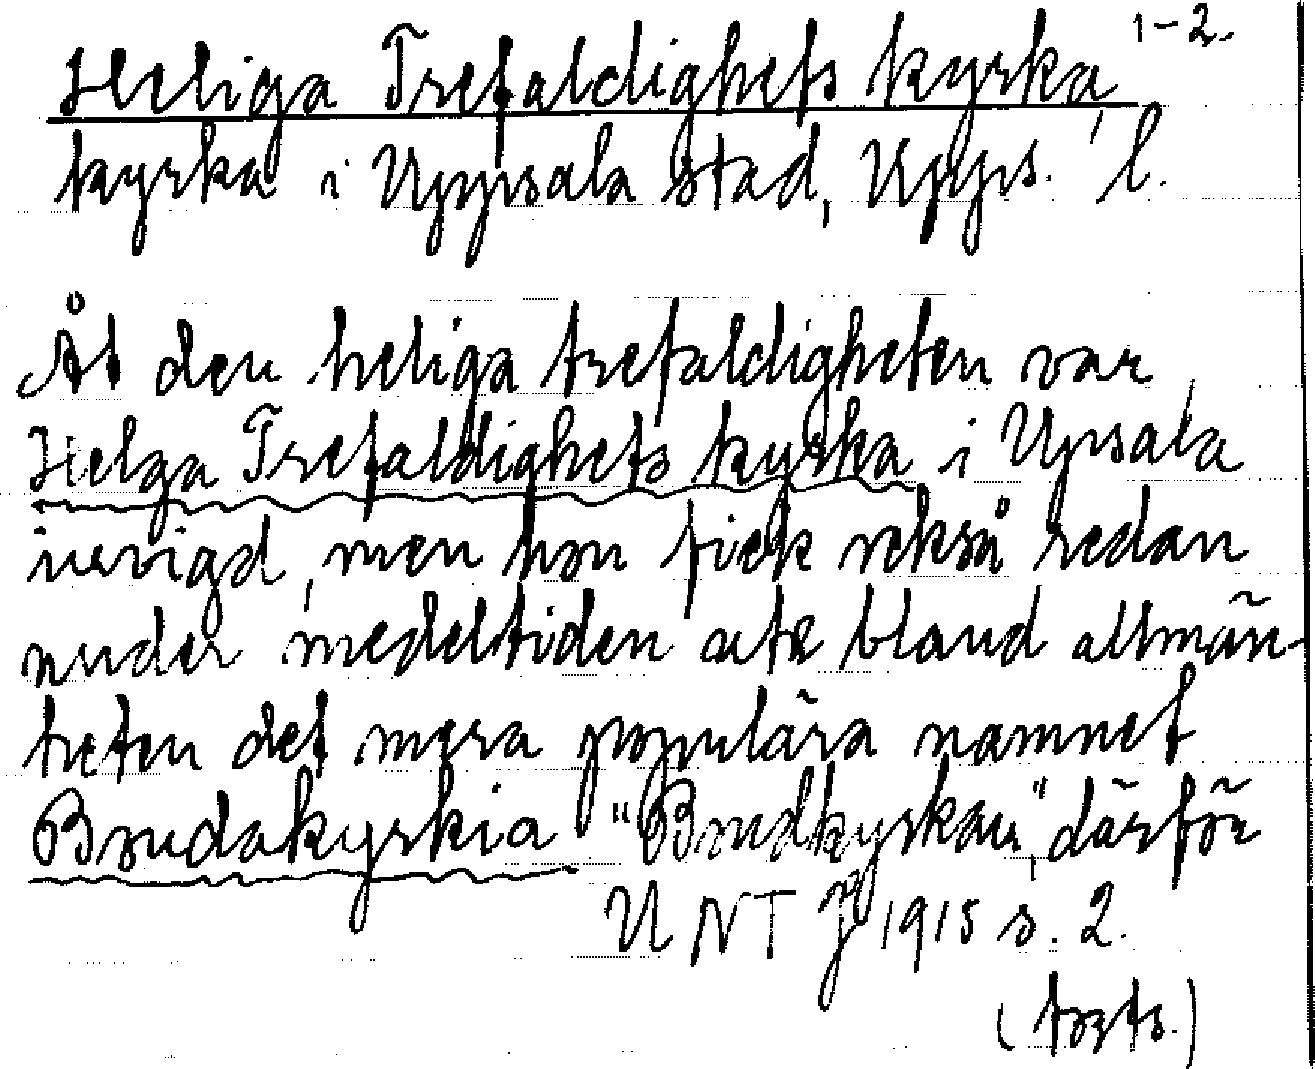 Heliga Trefaldighets kyrka, 1-2.
kyrka i Uppsala stad, Upps. l.
Åt den heliga trefaldigheten var
Helga Trefaldighets kyrka i Upsala
invigd, men hon fick också redan
under medeltiden ute bland allmän-
heten det mera populära namnet
Brudakyrkia "Brudkyrkan", därför
UNT J 1915 s. 2.
(forts.)